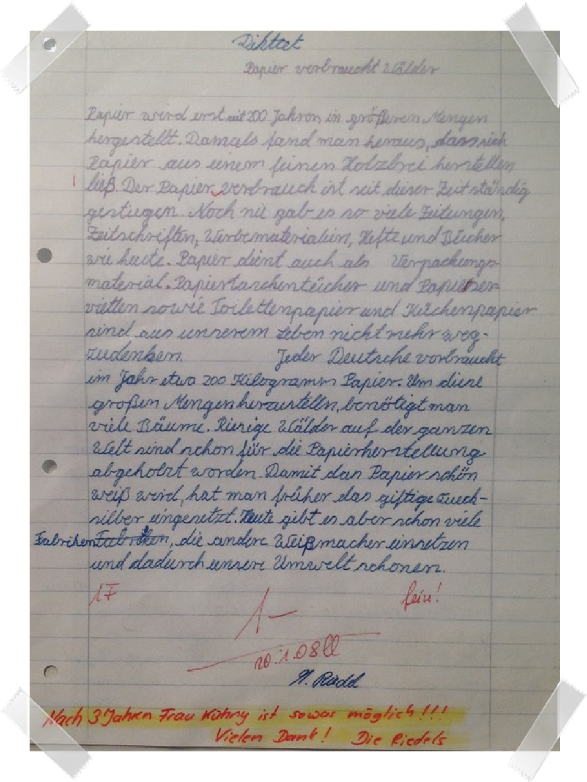 Diktat
Papier verbraucht Wälder
Papier wird erst seit 200 Jahren in größeren Mengen
hergestellt. Damals fand man heraus, dass sich
Papier aus einem feinen Holzbrei herstellen
ließ. Der Papierverbrauch ist seit dieser Zeit ständig
gestiegen. Noch nie gab es so viele Zeitungen,
Zeitschriften, Werbematerialien, Hefte und Bücher
wie heute. Papier dient auch als Verpackungs-
material. Papiertaschentücher und Papierser-
vietten sowie Toilettenpapier und Küchenpapier
sind aus unserem Leben nicht mehr weg-
zudenken. Jeder Deutsche verbraucht
im Jahr etwa 200 Kilogramm Papier. Um diese
großen Mengen herzustellen, benötigt man
viele Bäume. Riesige Wälder auf der ganzen
Welt sind schon für die Papierherstellung
abgeholzt worden. Damit das Papier schön
weiß wird, hat man früher das giftige Queck-
silber eingesetzt. Heute gibt es aber schon viele
Fabriken, die andere Weißmacher einsetzen
und dadurch unsere Umwelt schonen.
1F
fein!
1-
20.1.08
Nach 3 Jahren Frau Kühny ist sowas möglich!!!
Vielen Dank! Die Riedels